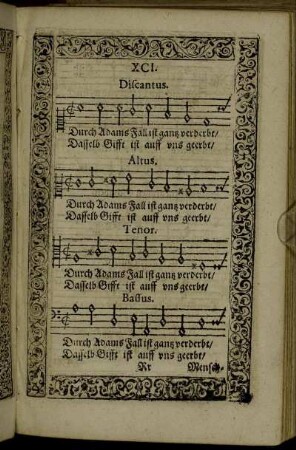 XCI.
Discantus.
Durch Adams Fall ist gantz verderbt/
Dasselb Gifft ist auff vns geerbt/
Altus.
Durch Adams Fall ist gantz verderbt/
Dasselb Gifft ist auff vns geerbt/
Tenor.
Durch Adams Fall ist gantz verderbt/
Dasselb Gifft ist auff vns geerbt/
Bassus.
Durch Adams Fall ist gantz verderbt/
Dasselb Gifft ist auff vns geerbt/
Rr Mensch-